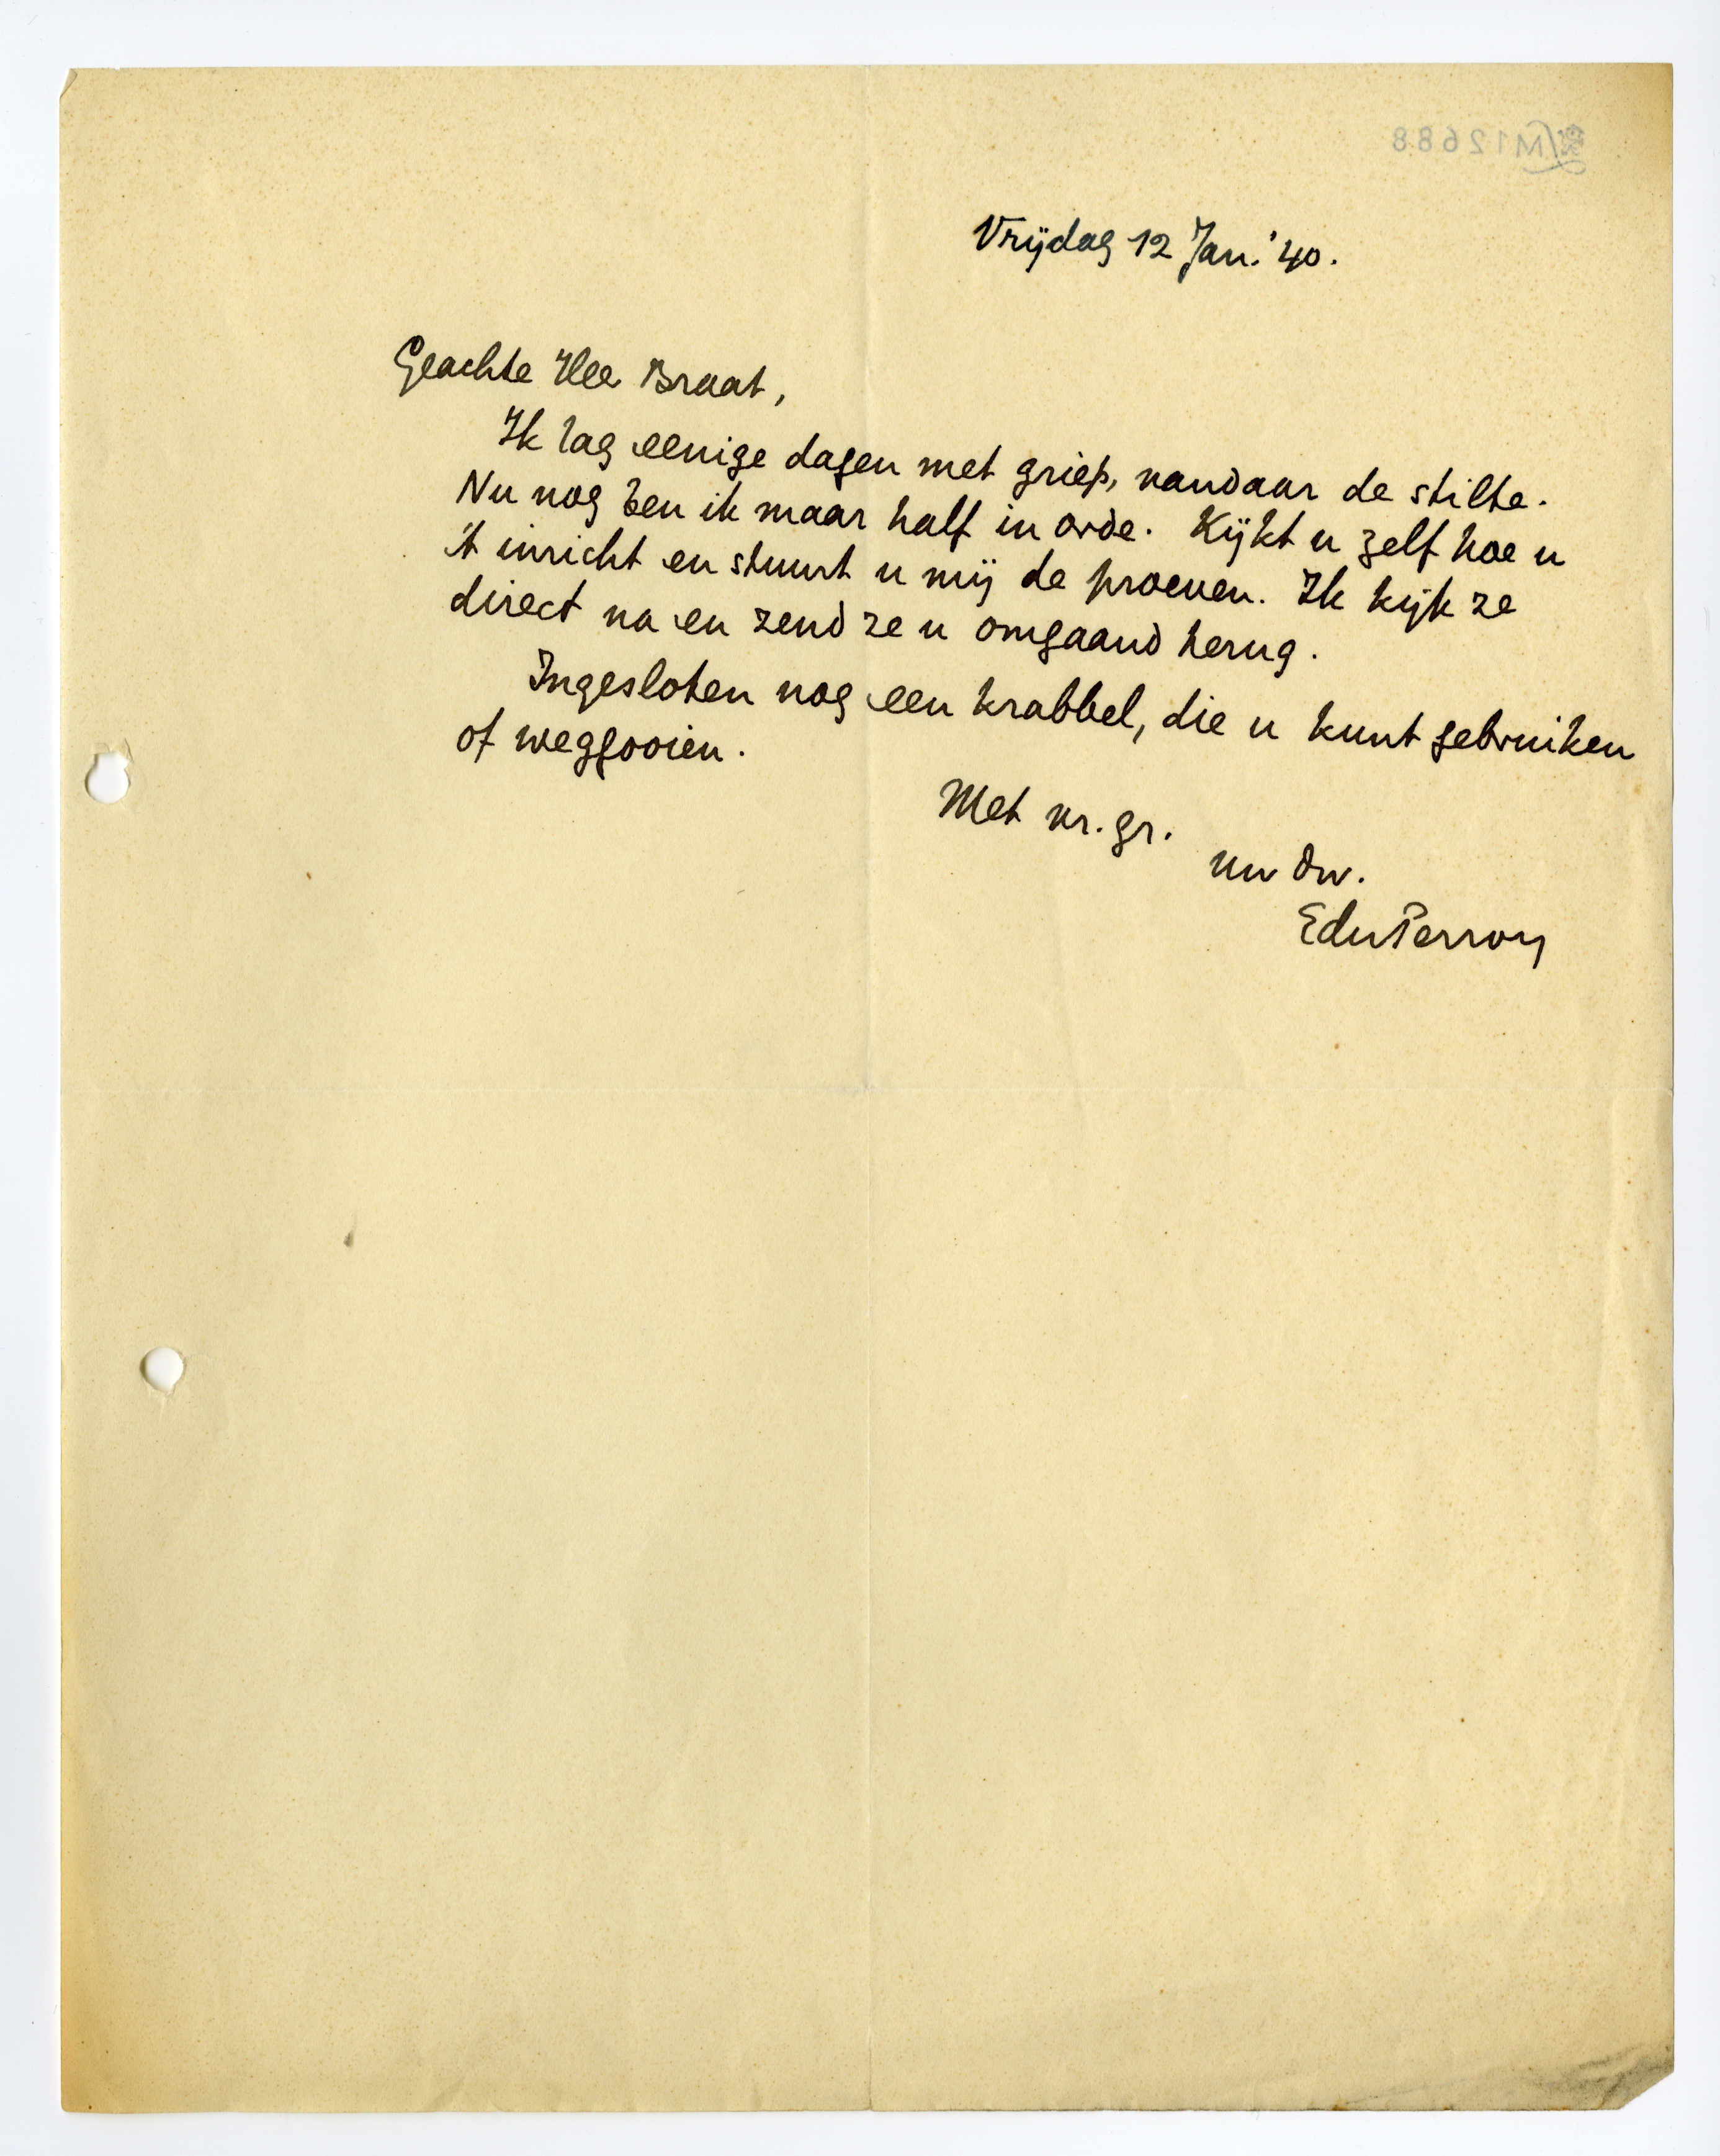 M12688
Vrijdag 12 Jan. '40.
Geachte Heer Braat,
Ik lag eenige dagen met griep, vandaar de stilte.
Nu nog ben ik maar half in orde. Kijkt u zelf hoe u
't inricht en stuurt u mij de proeven. Ik kijk ze
direct na en zend ze u omgaand terug.
Ingesloten nog een krabbel, die u kunt gebruiken
of weggooien.
Met vr. gr.
uw dw.
EduPerron